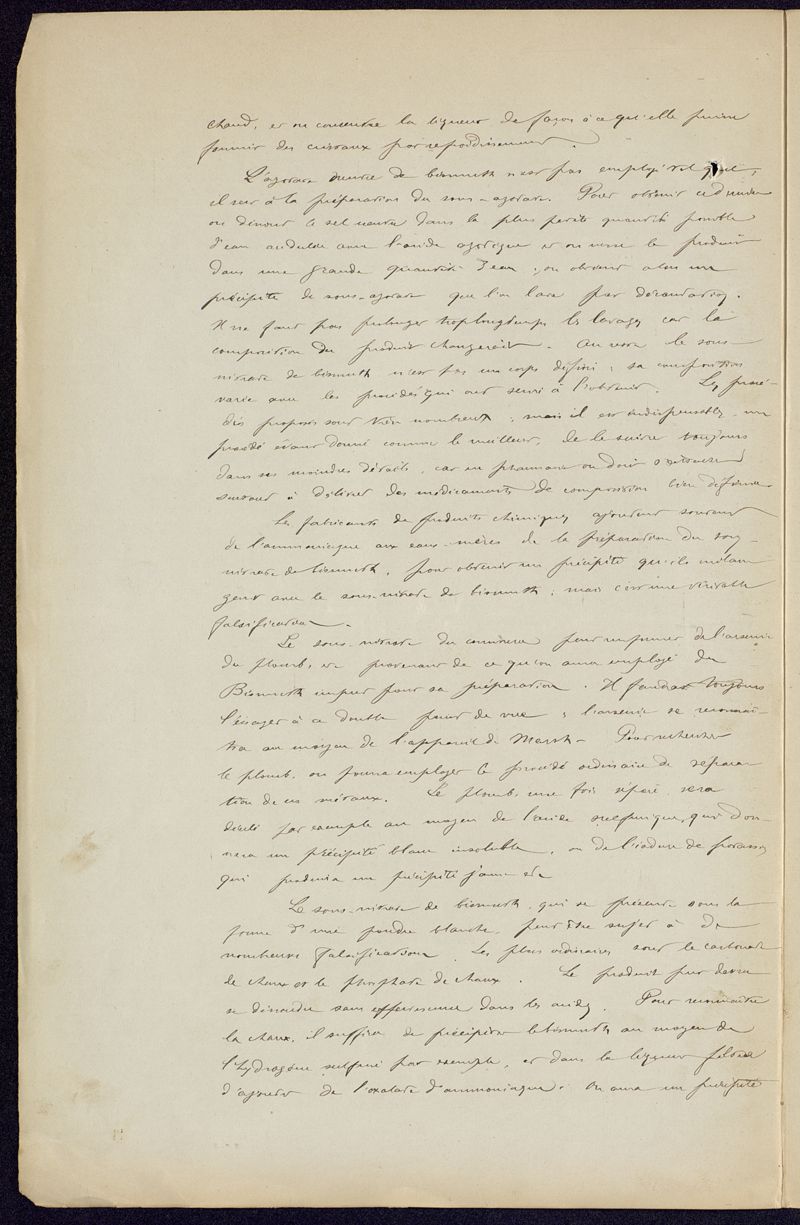 chaud, et on concentre la liqueur de façon à ce qu'elle puisse
fournir des cristaux par refroidissement.
L'azotate neutre de bismuth n'est pas employé tel quel,
il sert à la préparation du sous-azotate. Pour obtenir ce dernier
on dissout le sel neutre dans la plus petite quantité possible
d'eau acidulée avec l'acide azotique et on verse le produit
dans une grande quantité d'eau ; on obtient alors un
précipité de sous-azotate que l'on lave par décantation.
Il ne faut pas prolonger trop longtemps les lavages car la
composition du produit changerait. Au reste le sous-
nitrate de bismuth n'est pas un corps défini ; sa composition
varie avec les procédés qui ont servi à l'obtenir. Les procé-
dés proposés sont très nombreux ; mais il est indispensable, un
procédé étant donné comme le meilleur, de le suivre toujours
dans ses moindres détails, car en pharmacie on doit
surtout à délivrer des médicaments de composition bien définie.
Les fabricants de produits chimiques ajoutent souvent
de l'ammoniaque aux eaux-mères de la préparation du sous-
nitrate de bismuth, pour obtenir un précipité qu'ils mélan-
gent avec le sous-nitrate de bismuth ; mais c'est une véritable
falsification.
Le sous-nitrate du commerce peut renfermer de l'arsenic
du plomb, et provenant de ce qu'on aura employé du
Bismuth impur pour sa préparation. Il faudra toujours
l'essayer à ce double point de vue ; l'arsenic se reconnaî-
tra au moyen de l'appareil de Marsh. Pour rechercher
le plomb, on pourra employer le procédé ordinaire de sépara-
tion de ces métaux. Le plomb, une fois séparé, sera
décelé par exemple au moyen de l'acide sulfurique, qui don-
nera un précipité blanc insoluble, ou de l'iodure de potassium
qui produira un précipité jaune etc
Le sous-nitrate de bismuth, qui se présente sous la
forme d'une poudre blanche, peut être sujet à de
nombreuses falsifications. Les plus ordinaires sont le carbonate
de chaux et le phosphate de chaux. Le produit pur devra
se dissoudre sans effervescence dans les acides. Pour reconnaître
la chaux, il suffira de précipiter le bismuth au moyen de
l'hydrogène sulfuré par exemple, et dans la liqueur filtrée
d'ajouter de l'oxalate d'ammoniaque. On aura un précipité